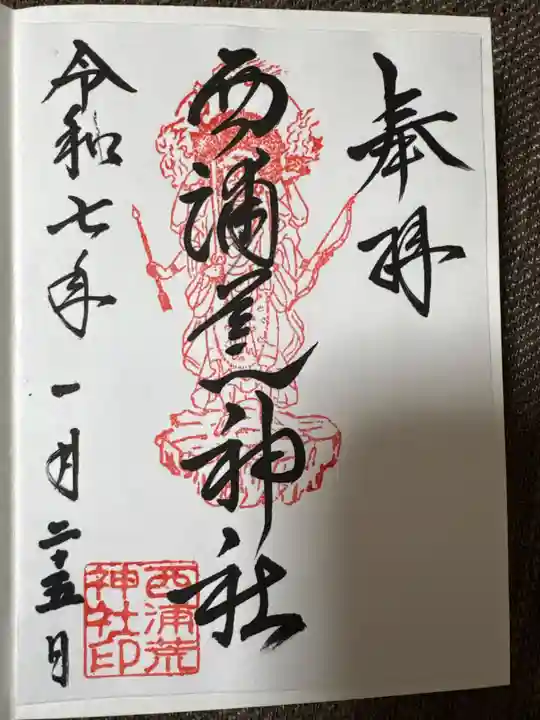 奉拝
西浦荒神社
令和七年 一月二十五日
西浦荒
神社印